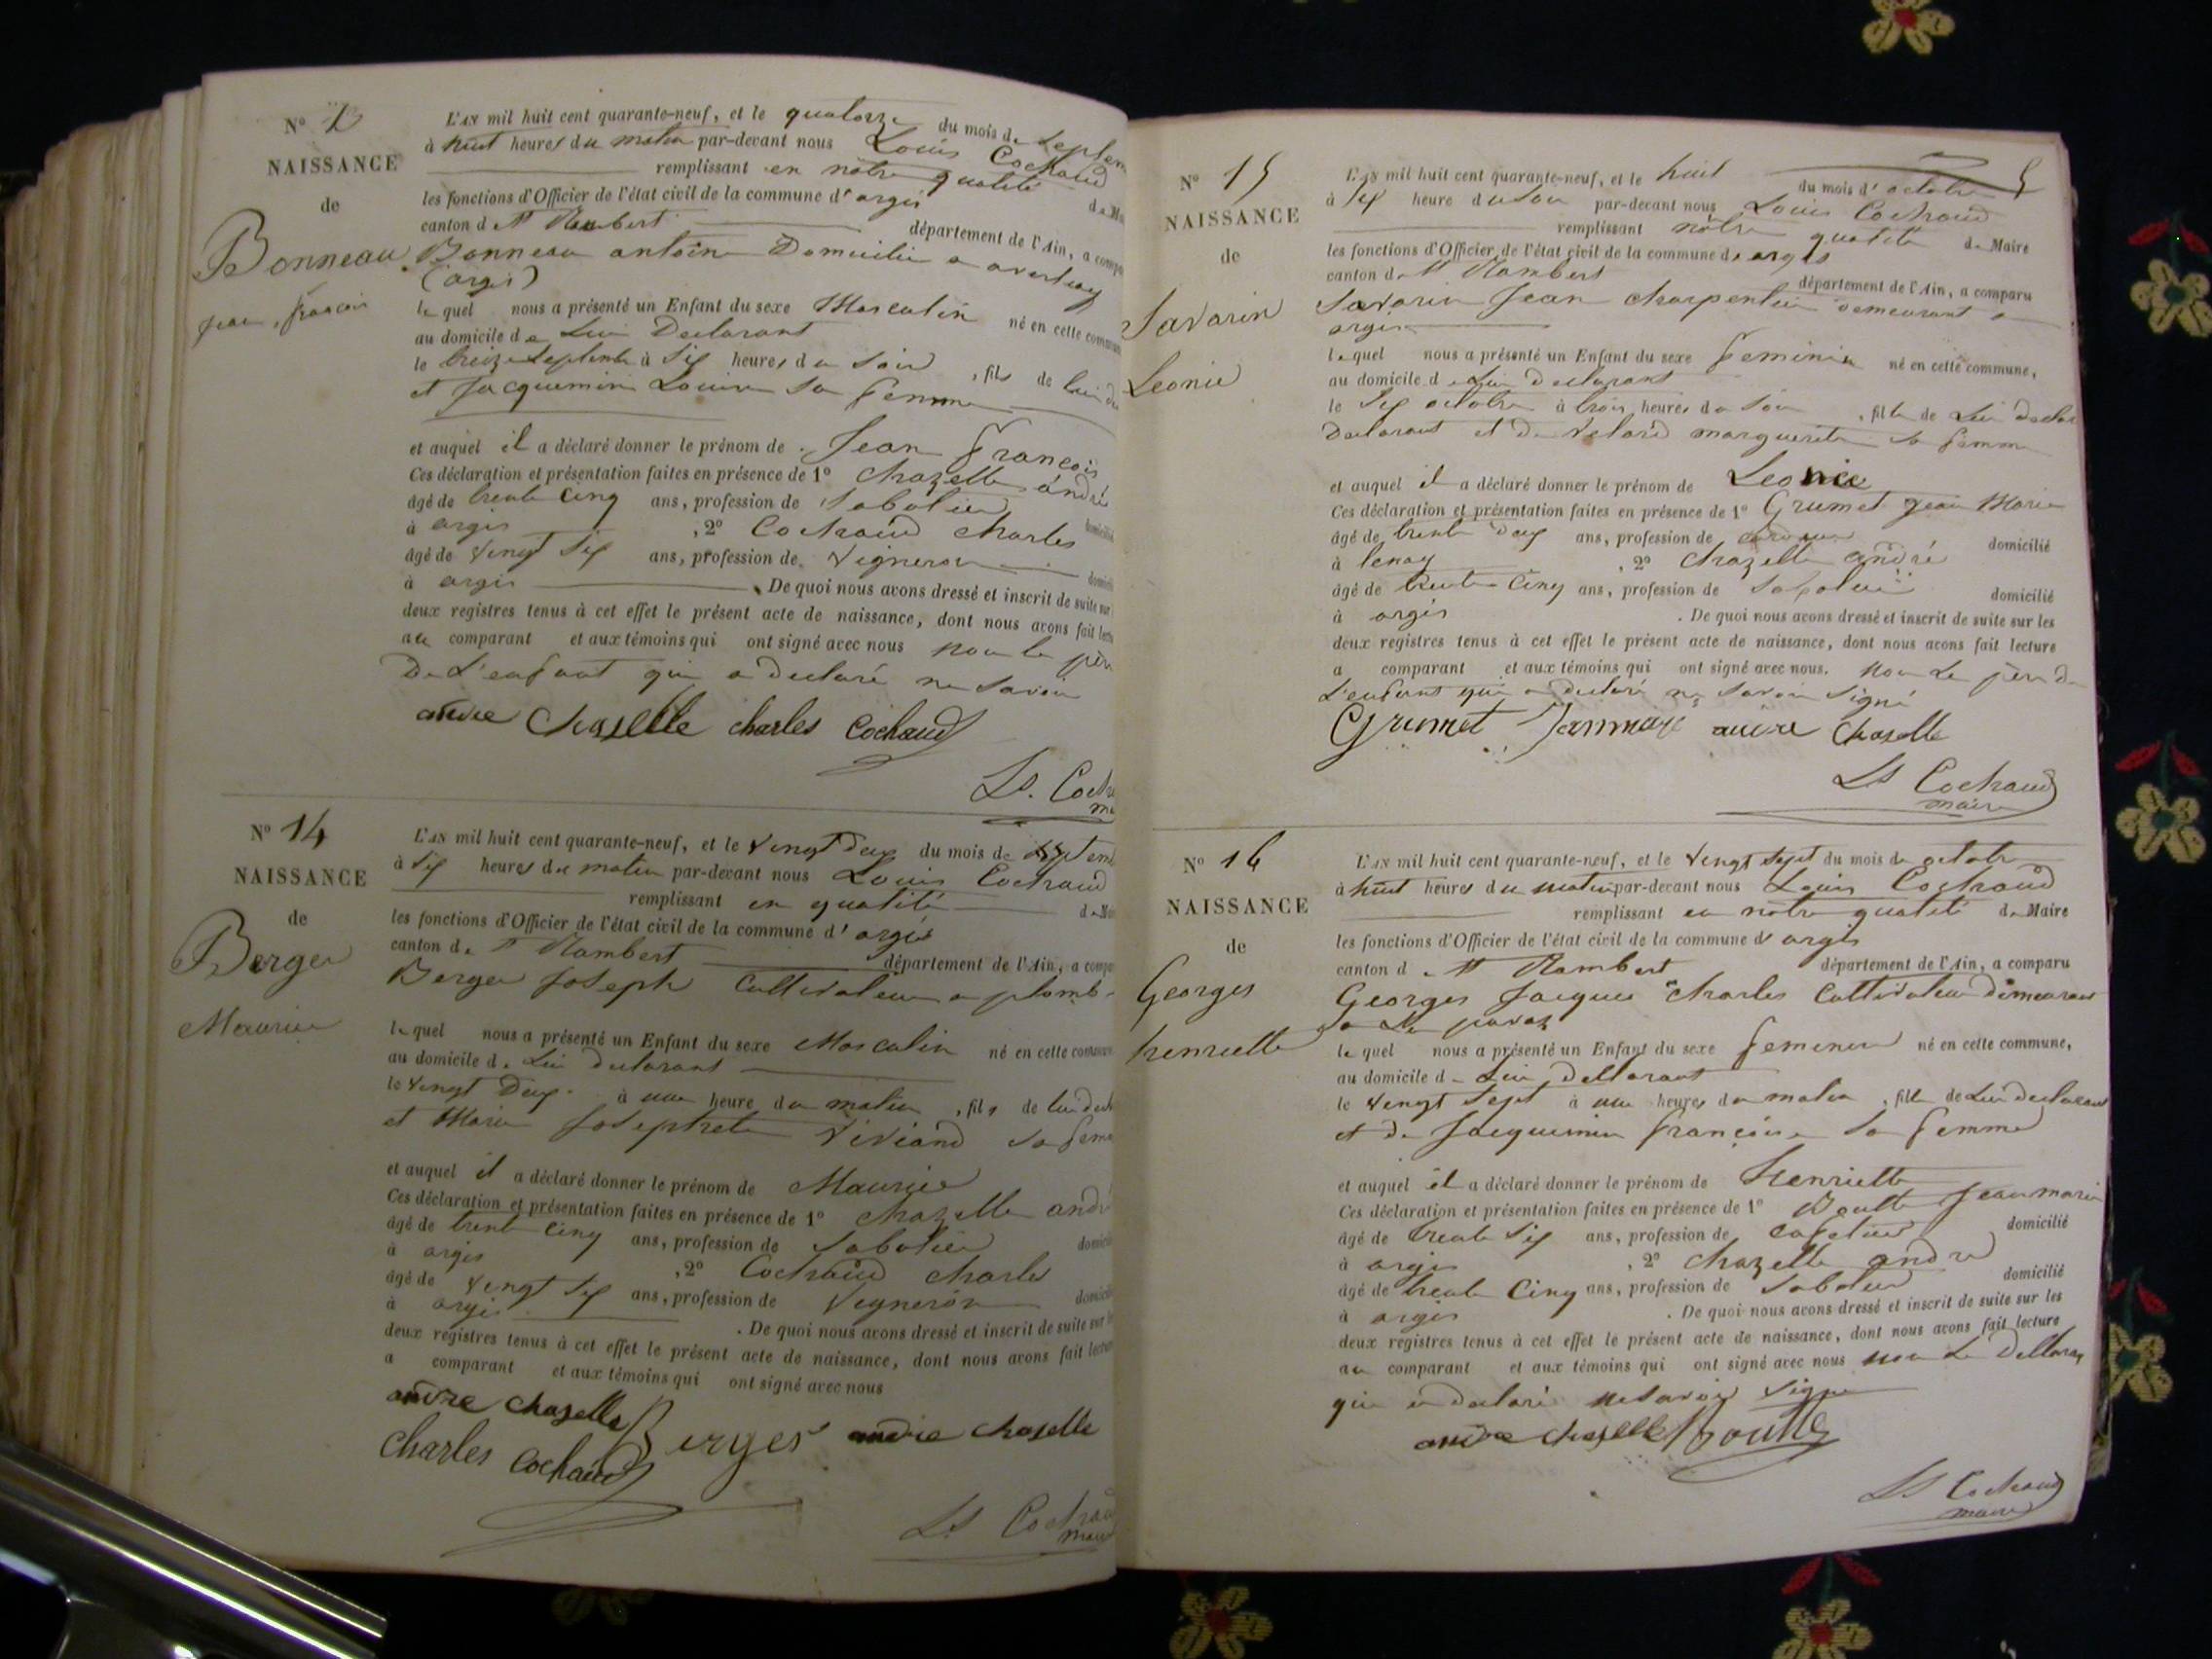 N°
NAISSANCE
de
Bonneau
jean, françois
L'AN mil huit cent quarante-neuf, et le quatorze du mois de
à huit heures du matin par-devant nous Louis Cochaud
remplissant en notre qualité
les fonctions d'Officier de l'état civil de la commune d'argis
canton d St Rambert département de l'Ain, a
Bonneau antoine Domicilié a
(argis)
le quel nous a présenté un Enfant du sexe Masculin né en cette
au domicile de Lui Declarant
le treize Septembre à six heures du soir, fils de lui
et Jacquemin Louise sa femme
et auquel il a déclaré donner le prénom de Jean François
Ces déclaration et présentation faites en présence de 1° Chazelle andré
âgé de trente cinq ans, profession de Sabotier
à argis, 2° Cochaud Charles
âgé de vingt six ans, profession de Vigneron
à argis. De quoi nous avons dressé et inscrit de suite sur
deux registres tenus à cet effet le présent acte de naissance, dont nous avons fait
au comparant et aux témoins qui ont signé avec nous non le père
De L'enfant qui a declaré ne savoir
andre Chazelle charles Cochaud
Ls.
N° 14
NAISSANCE
de
Berger
Maurice
L'AN mil huit cent quarante-neuf, et le vingt deux du mois de
à six heures du matin par-devant nous Louis Cochaud
remplissant en qualité
les fonctions d'Officier de l'état civil de la commune d'argis
canton de St Rambert département de l'Ain, a
Berger Joseph Cultivateur a plomb
le quel nous a présenté un Enfant du sexe Masculin né en cette
au domicile de Lui declarant
le vingt Deux à une heure du matin, fils de lui
et Marie Josephete Viviand sa
et auquel il a déclaré donner le prénom de Maurice
Ces déclaration et présentation faites en présence de 1° Chazelle
âgé de trente cinq ans, profession de Sabotier
à argis, 2° Cochaud Charles
âgé de vingt six ans, profession de Vigneron
à argis. De quoi nous avons dressé et inscrit de suite sur
deux registres tenus à cet effet le présent acte de naissance, dont nous avons fait
a comparant et aux témoins qui ont signé avec nous
andre chazelle Berger andre chazelle
Charles Cochaud
Ls
N° 15
NAISSANCE
de
Savarin
Leonie
L'AN mil huit cent quarante-neuf, et le huit du mois d'octobre
à six heure du soir par-devant nous Louis Cochaud
remplissant notre qualité de Maire
les fonctions d'Officier de l'état civil de la commune de argis
canton de St Rambert département de l'Ain, a comparu
Savarin Jean charpentier demeurant a
argis
le quel nous a présenté un Enfant du sexe feminin né en cette commune,
au domicile de Lui declarant
le six octobre à trois heures du soir, fille de Lui
Declarant et de marguerite sa femme
et auquel il a déclaré donner le prénom de Leonie
Ces déclaration et présentation faites en présence de 1° Grumet Jean Marie
âgé de trente deux ans, profession de domicilié
à tenay, 2° Chazelle andré
âgé de trente cinq ans, profession de domicilié
à argis. De quoi nous avons dressé et inscrit de suite sur les
deux registres tenus à cet effet le présent acte de naissance, dont nous avons fait lecture
a comparant et aux témoins qui ont signé avec nous. non Le père de
L'enfant qui a declaré ne savoir signé
Grumet andre Chazelle
Ls Cochaud
maire
N° 16
NAISSANCE
de
Georges
henriette
L'AN mil huit cent quarante-neuf, et le vingt sept du mois de octobre
à huit heures du matin par-devant nous Louis Cochaud
remplissant en notre qualité de Maire
les fonctions d'Officier de l'état civil de la commune d argis
canton de St Rambert département de l'Ain, a comparu
Georges Jacques Charles Cultivateur demeurant
le quel nous a présenté un Enfant du sexe feminin né en cette commune,
au domicile de Lui Declarant
le vingt sept à une heures du matin, fille de Lui declarant
et de Jacquemin françoise sa femme
et auquel il a déclaré donner le prénom de Henriette
Ces déclaration et présentation faites en présence de 1° Jean marie
âgé de trente six ans, profession de cafetier domicilié
à argis, 2° Chazelle andré
âgé de trente cinq ans, profession de Sabotier domicilié
à argis. De quoi nous avons dressé et inscrit de suite sur les
deux registres tenus à cet effet le présent acte de naissance, dont nous avons fait lecture
au comparant et aux témoins qui ont signé avec nous non Le
qui a declaré ne savoir signer
andre chazelle
Ls Cochaud
maire